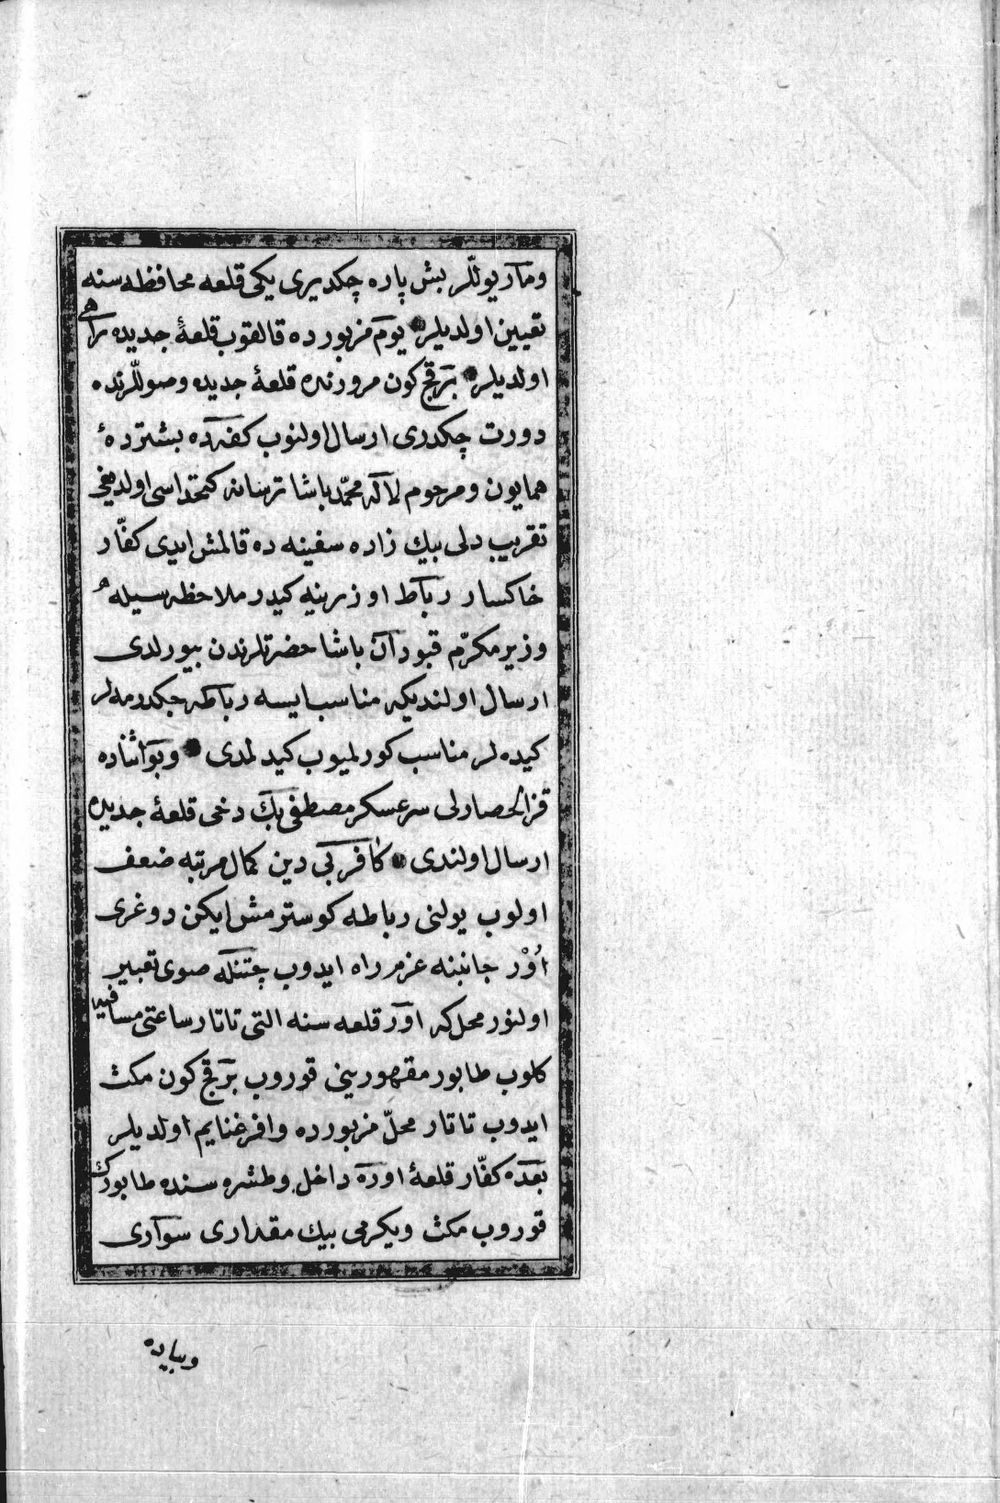 ومآریوللر بش پاره چكدیری یكی قلعه محافظه سنه
تعیین اولدیلر یوم مزبورده قالقوب قلعۀ جدیده راهی
اولدیلر بر قچ كون مرورنده قلعۀ جدیده وصوللرنده
دورت چكدری ارسال اولنوب كفه ده بشترده ء
همایون ومرحوم لاله محمّد پاشا ترسانه كتخداسی اولدیغی
تقریب دلی بیك زاده سفینه ده قالمش ایدی كفّار
خاكسار رباط اوزرینه كیدر ملاحظه سیله
وزیر مكرّم قبودان پاشا حضرتلرندن بیورلدی
ارسال اولندیكه مناسب ایسه رباطه چكدرمه لر
كیده لر مناسب كورلمیوب كیدلمدی وبو اثناده
قزالحصارلی سرعسكر مصطفی بك دخی قلعۀ جدیده
ارسال اولندی كافر بی دین كمال مرتبه ضعف
اولوب یولنی رباطه كوسترمش ایكن دوغری
اُوْر جانبنه عزم راه ایدوب چتنكه صوی تعبیر
اولنور محل كه اور قلعه سنه التی تاتار ساعتی مسافه
كلوب طابور مقهورینی قوروب بر قچ كون مكث
ایدوب تاتار محلّ مزبورده وافر غنایم اولدیلر
بعده كفّار قلعۀ اوره داخل وطشره سنده طابورك
قوروب مكث ویكرمی بیك مقداری سواری
وپیاده